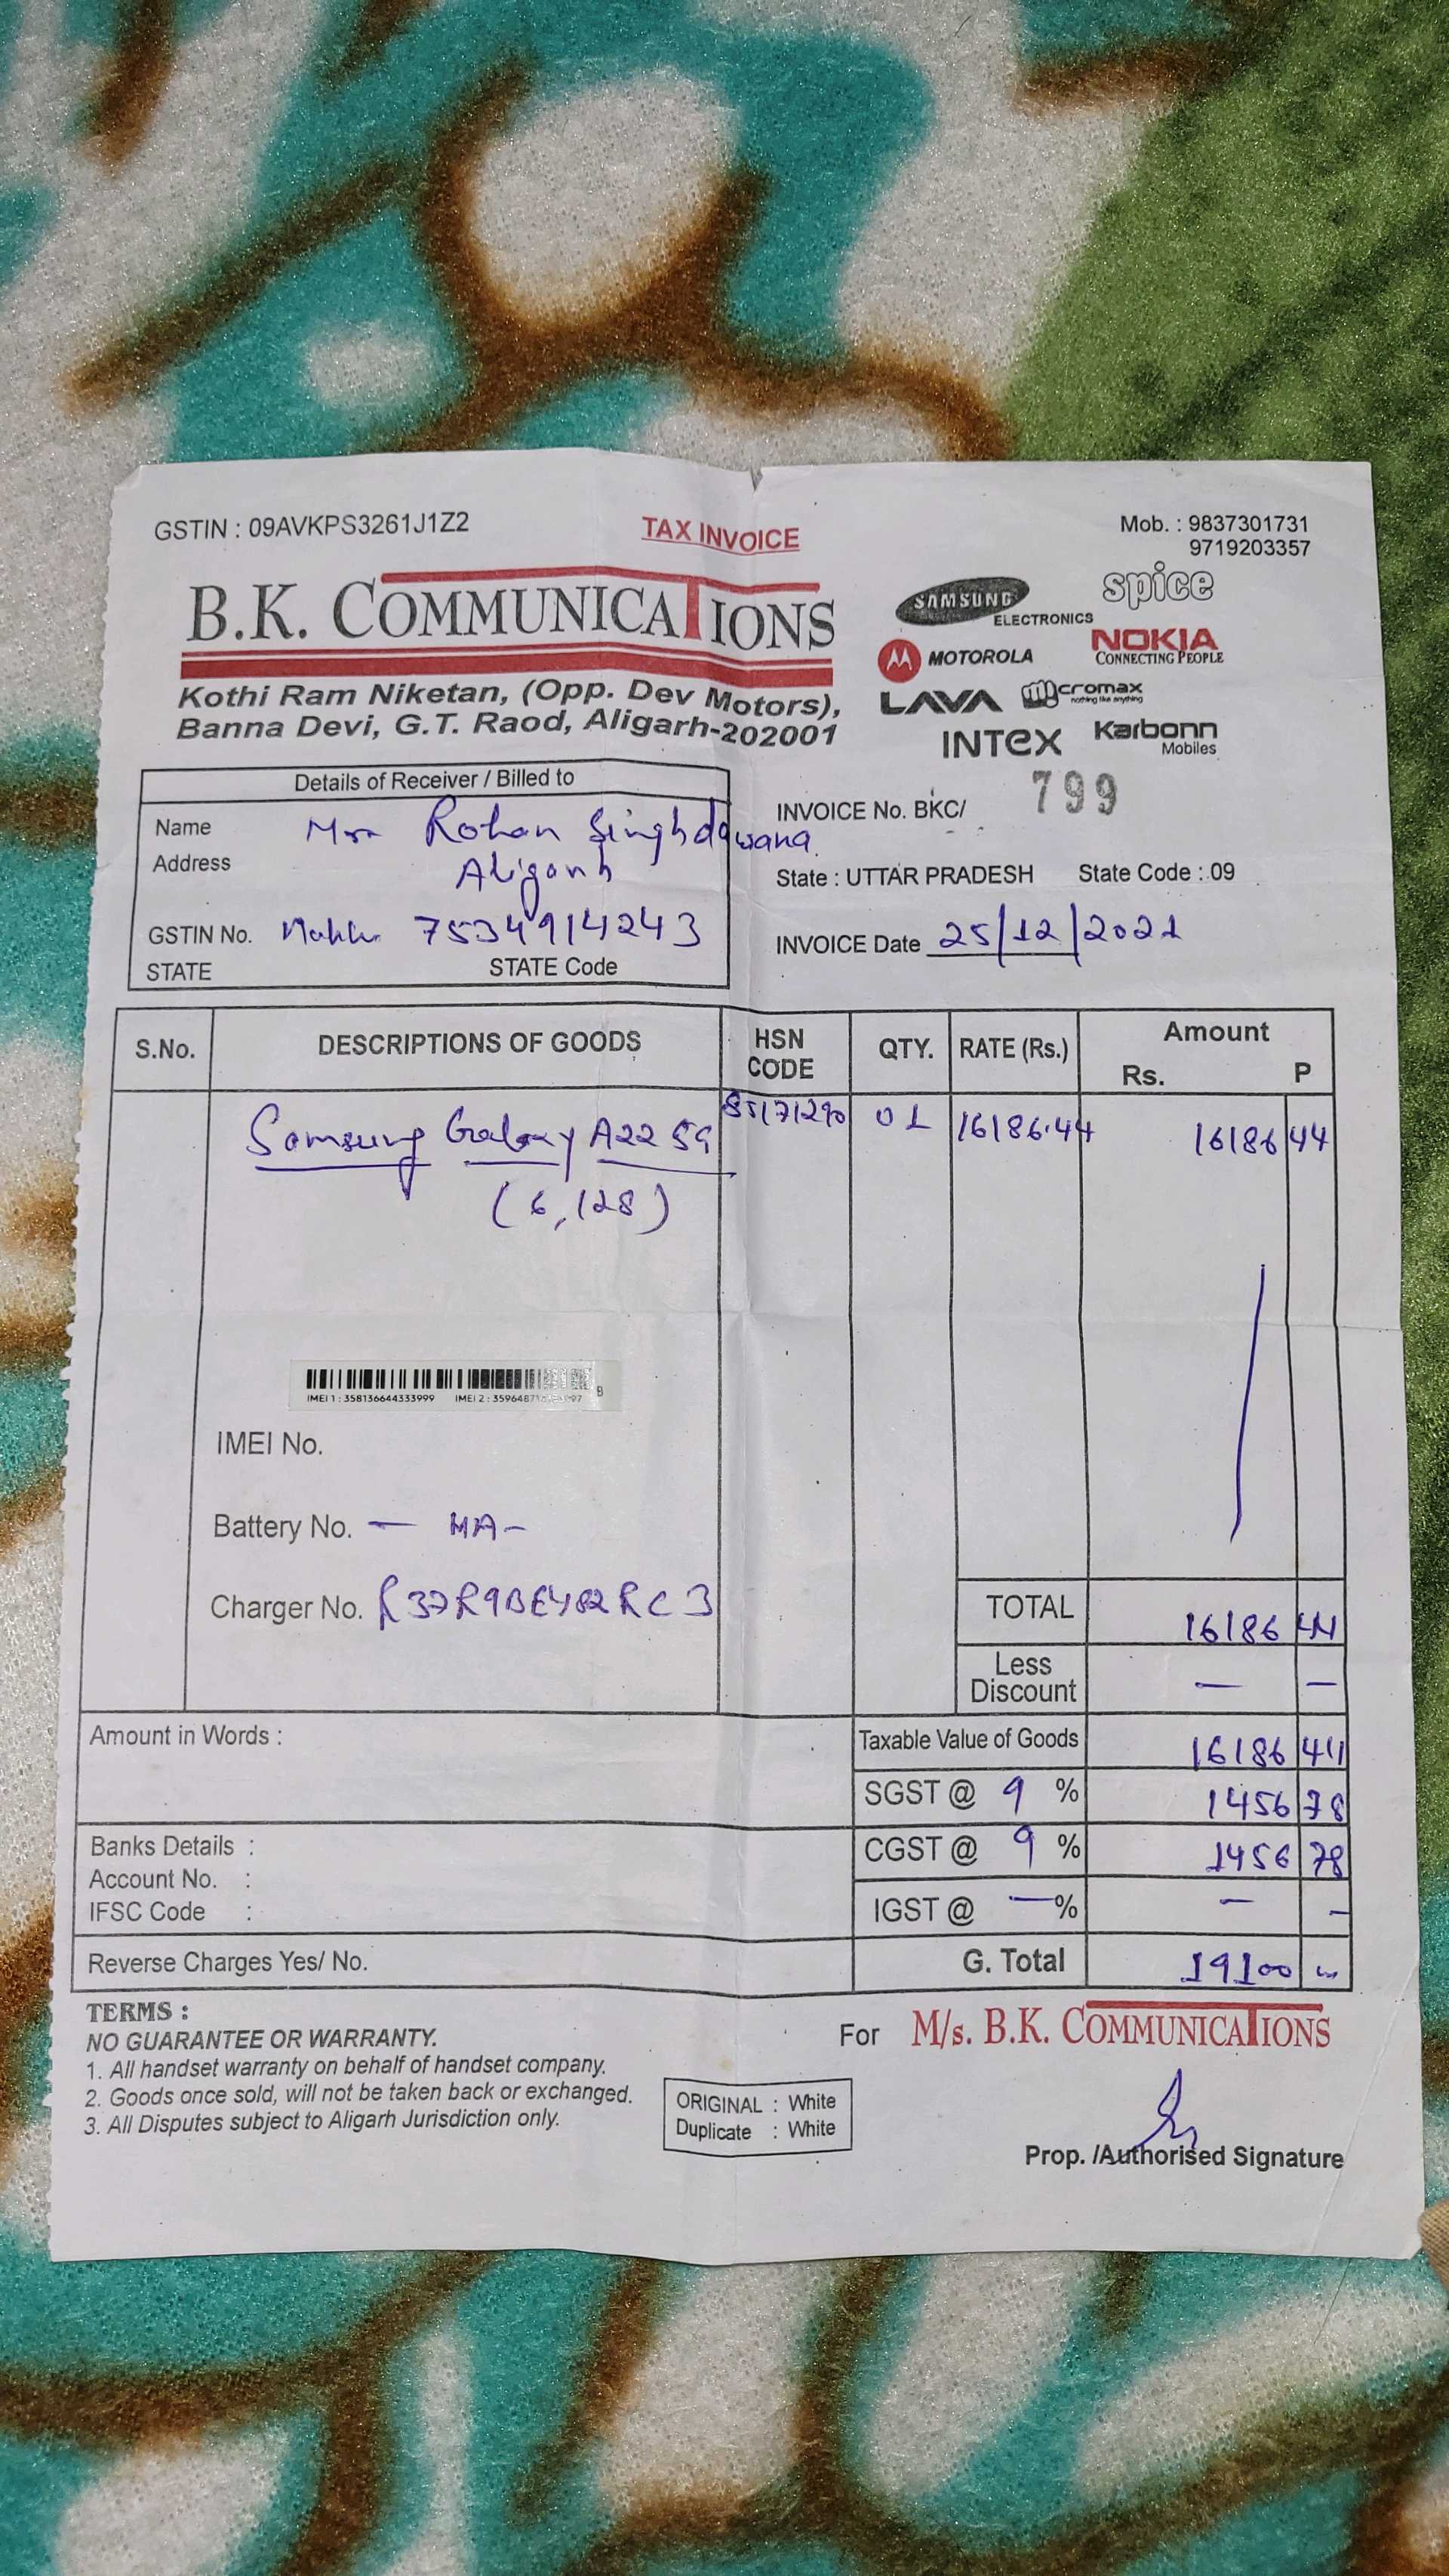 GSTIN : 09AVKPS3261J1Z2
TAX INVOICE
Mob. : 9837301731
9719203357
B.K. COMMUNICATIONS
Kothi Ram Niketan, (Opp. Dev Motors),
Banna Devi, G.T. Raod, Aligarh-202001
SAMSUNG
ELECTRONICS
spice
MOTOROLA
NOKIA
CONNECTING PEOPLE
LAVA
Micromax
nothing like anything
INTEX
Karbonn
Mobiles
Details of Receiver / Billed to
Name Rohan Singh
Address Aligarh
GSTIN No. 7534914243
STATE STATE Code
INVOICE No. BKC/ 799
State : UTTAR PRADESH State Code : 09
INVOICE Date 25/12/2021
S.No. DESCRIPTIONS OF GOODS HSN CODE QTY. RATE (Rs.) Amount Rs. P
Samsung Galaxy A22 5G 85171290 01 16186.44 16186 44
(6,128)
IMEI 1 : 358136644333999 IMEI 2 :
IMEI No.
Battery No. — NA -
Charger No. R37R9BE482RC3
TOTAL 16186 44
Less Discount — —
Amount in Words :
Taxable Value of Goods 16186 44
SGST @ 9 % 1456 78
CGST @ 9 % 1456 78
IGST @ — % — -
Banks Details :
Account No. :
IFSC Code :
Reverse Charges Yes/ No.
G. Total 19100
TERMS :
NO GUARANTEE OR WARRANTY.
1. All handset warranty on behalf of handset company.
2. Goods once sold, will not be taken back or exchanged.
3. All Disputes subject to Aligarh Jurisdiction only.
ORIGINAL : White
Duplicate : White
For M/s. B.K. COMMUNICATIONS
Prop. /Authorised Signature